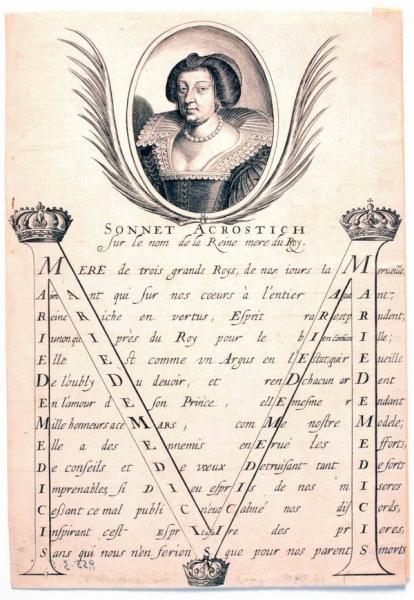 SONNET ACROSTICH
Sur le nom de la Reine mere du Roy.
MERE de trois grands Roys, de nos iours la Merveille
AimANT qui sur nos coeurs à l'entier Ant;
Reine Riche en vertus, Esprit raRe et prudent,
Iunon qui près du Roy pour le bIen comun ille;
Elle Est comme vn Argus en l'Estat, qui rEueille
De l'oubly Du deuoir, et renD chacun arDent
En l'amour dE son Prince, ellE mesme rEndant
Mille honneurs a cé MARS, coM Me nostre Modele;
Elle a des Ennemis enErué les Efforts,
De conseils et De voeux Detruisant tant De forts
Imprenables, si DI eu espris de nos mIseres
Cessant ce mal publiC neuCCalmé nos disCords,
Inspirant cest Esprit des prIeres,
Sans qui nous n'en ferions que pour nos parents Smorts